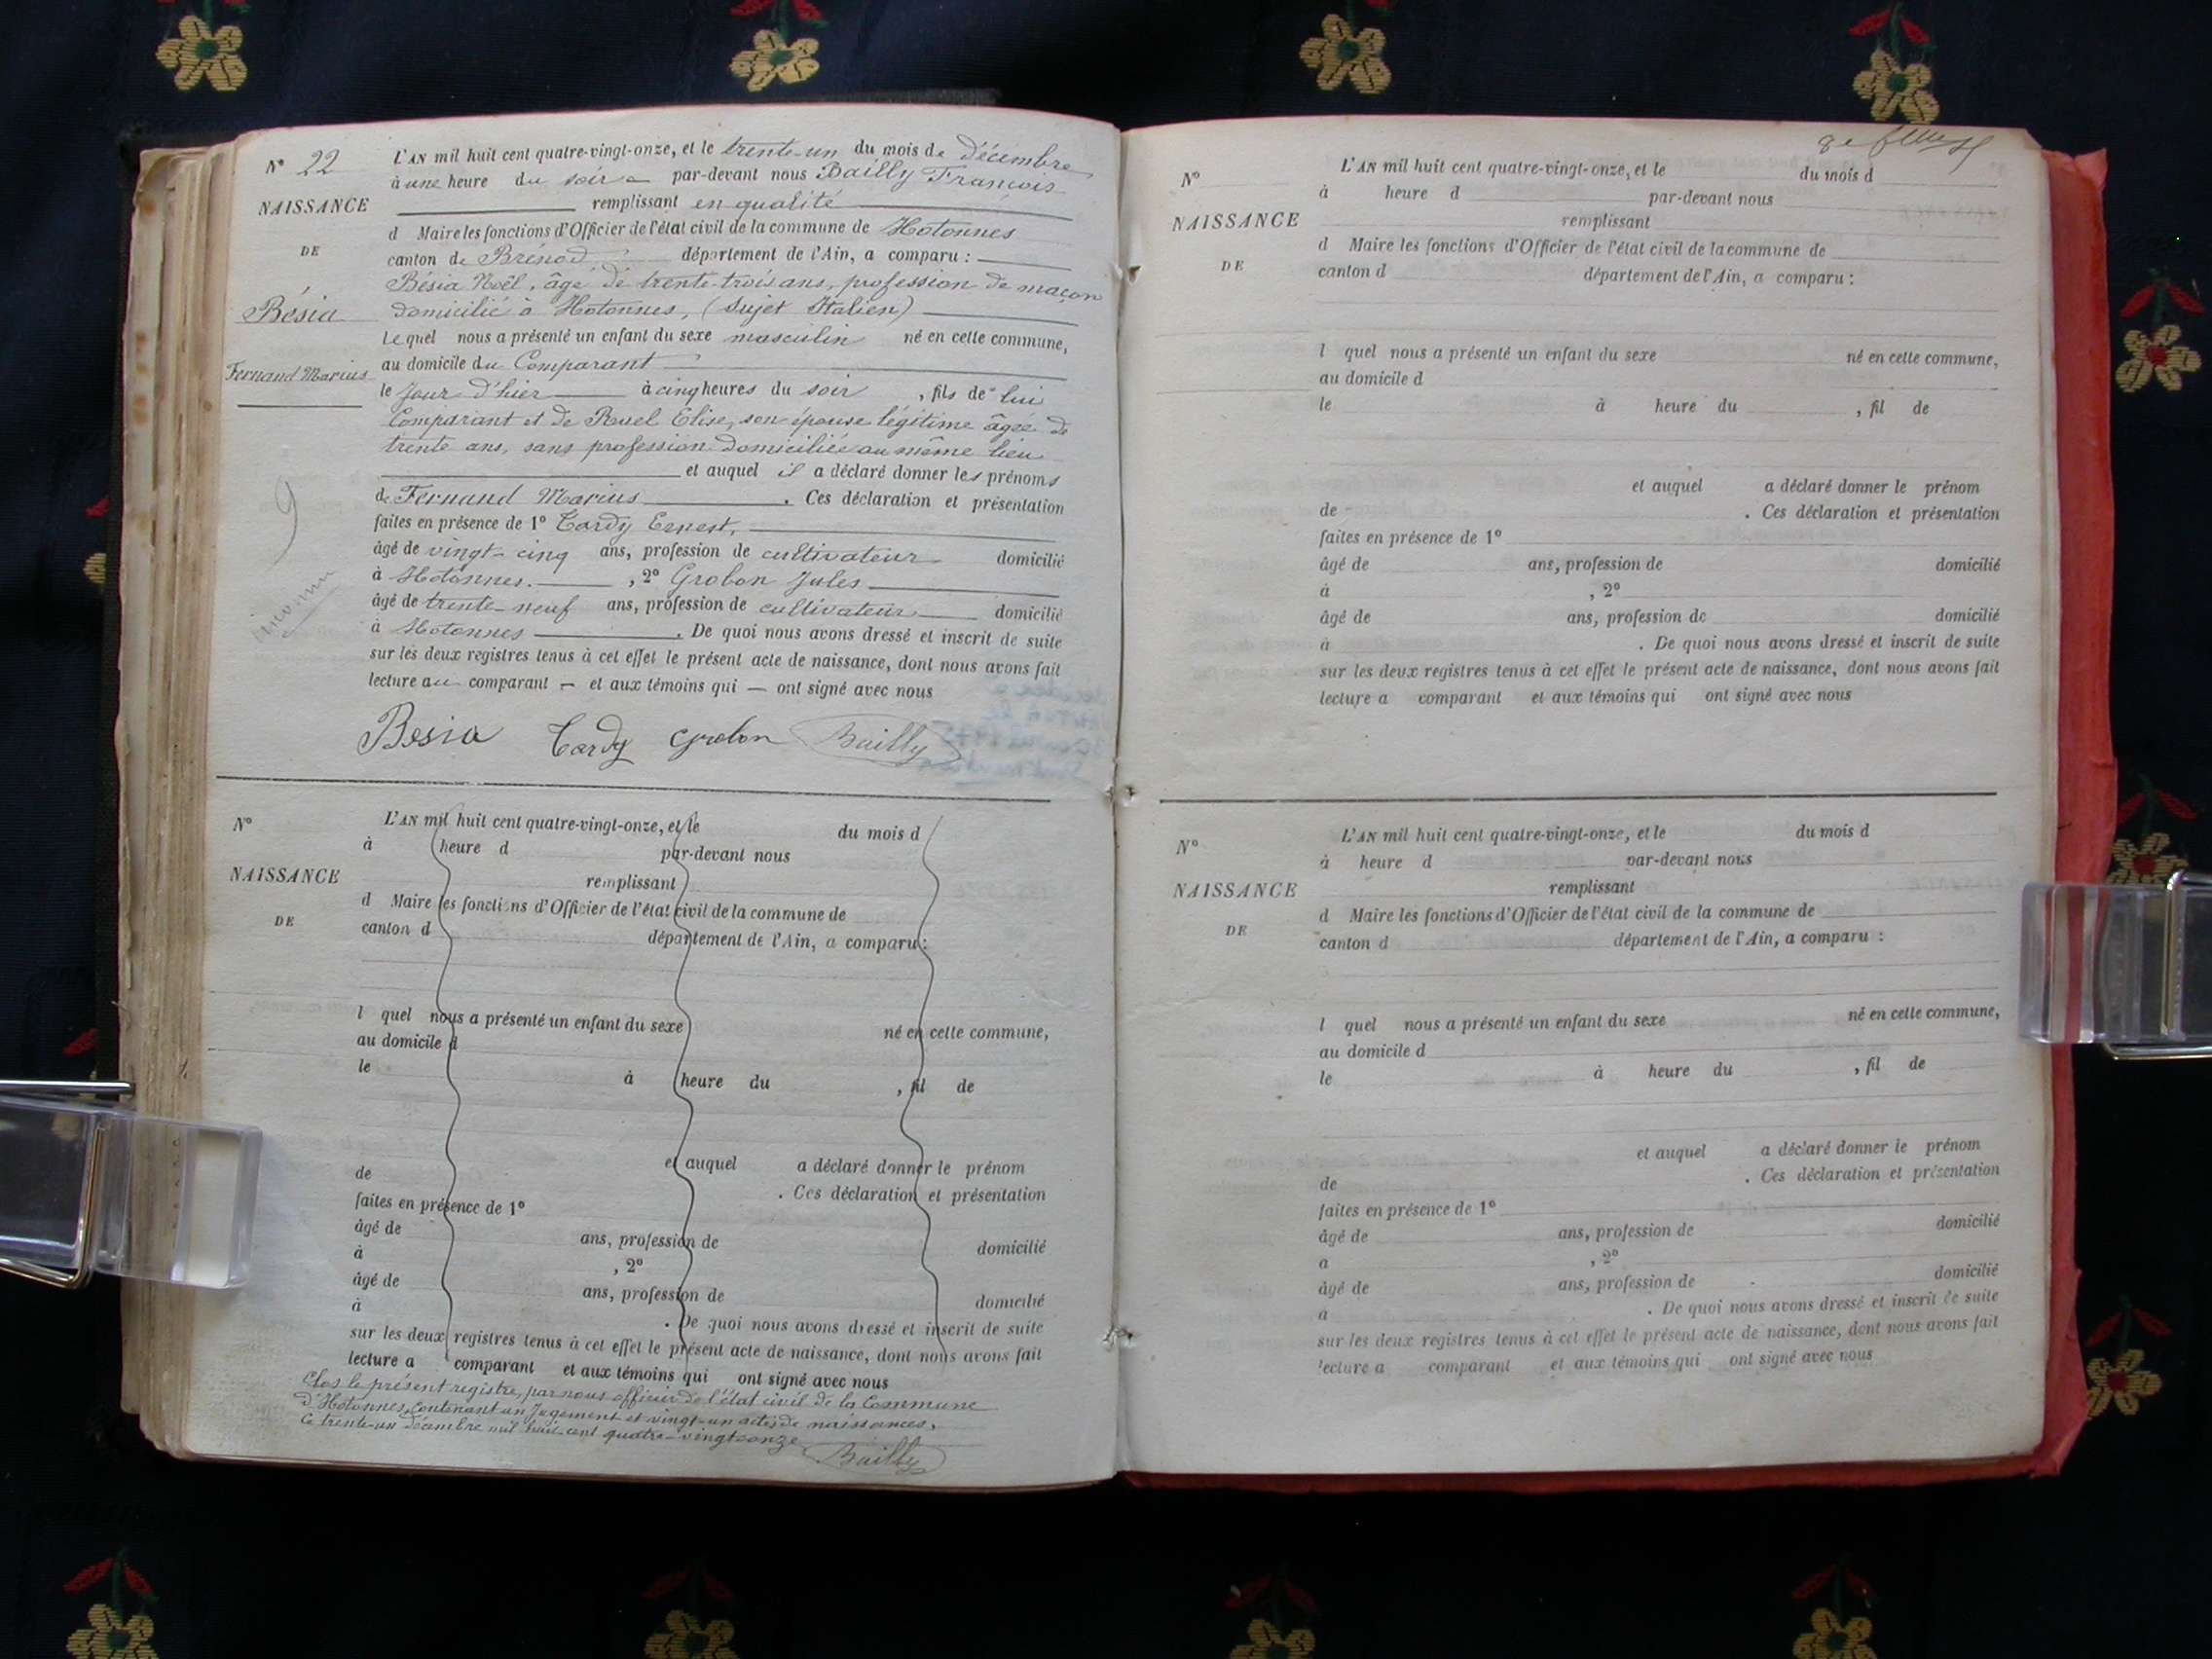 N° 22
NAISSANCE
DE
Bésia
Fernand Marius
L'AN mil huit cent quatre-vingt-onze, et le trente-un du mois de décembre
à une heure du soir par-devant nous Bailly François
remplissant en qualité
d Maire les fonctions d'Officier de l'état civil de la commune de Hotonnes
canton de Brénod département de l'Ain, a comparu :
Bésia Noël, âgé de trente-trois ans, profession de maçon
domicilié à Hotonnes, (Sujet Italien)
Lequel nous a présenté un enfant du sexe masculin né en cette commune,
au domicile du Comparant
le jour d'hier à cinq heures du soir, fils de lui
Comparant et de Ruel Elise, son épouse légitime âgée de
trente ans, sans profession domiciliée au même lieu
et auquel il a déclaré donner les prénoms
de Fernand Marius. Ces déclaration et présentation
faites en présence de 1° Tardy Ernest,
âgé de vingt-cinq ans, profession de cultivateur domicilié
à Hotonnes. , 2° Grobon Jules
âgé de trente-neuf ans, profession de cultivateur domicilié
à Hotonnes. De quoi nous avons dressé et inscrit de suite
sur les deux registres tenus à cet effet le présent acte de naissance, dont nous avons fait
lecture au comparant — et aux témoins qui — ont signé avec nous
Besia Tardy Grobon Bailly
9
inconnu
N°
NAISSANCE
DE
L'AN mil huit cent quatre-vingt-onze, et le du mois d
à heure d par-devant nous
remplissant
d Maire les fonctions d'Officier de l'état civil de la commune de
canton d département de l'Ain, a comparu :
l quel nous a présenté un enfant du sexe né en cette commune,
au domicile d
le à heure du , fil de
et auquel a déclaré donner le prénom
de . Ces déclaration et présentation
faites en présence de 1°
âgé de ans, profession de domicilié
à , 2°
âgé de ans, profession de domicilié
à . De quoi nous avons dressé et inscrit de suite
sur les deux registres tenus à cet effet le présent acte de naissance, dont nous avons fait
lecture a comparant et aux témoins qui ont signé avec nous
Clos le présent registre, par nous officier de l'état civil de la Commune
d'Hotonnes, contenant un Jugement et vingt-un actes de naissances.
Ce trente-un Décembre mil huit-cent quatre-vingt-onze
Bailly
N°
NAISSANCE
DE
L'AN mil huit cent quatre-vingt-onze, et le du mois d
à heure d par-devant nous
remplissant
d Maire les fonctions d'Officier de l'état civil de la commune de
canton d département de l'Ain, a comparu :
l quel nous a présenté un enfant du sexe né en cette commune,
au domicile d
le à heure du , fil de
et auquel a déclaré donner le prénom
de . Ces déclaration et présentation
faites en présence de 1°
âgé de ans, profession de domicilié
à , 2°
âgé de ans, profession de domicilié
à . De quoi nous avons dressé et inscrit de suite
sur les deux registres tenus à cet effet le présent acte de naissance, dont nous avons fait
lecture a comparant et aux témoins qui ont signé avec nous
N°
NAISSANCE
DE
L'AN mil huit cent quatre-vingt-onze, et le du mois d
à heure d par-devant nous
remplissant
d Maire les fonctions d'Officier de l'état civil de la commune de
canton d département de l'Ain, a comparu :
l quel nous a présenté un enfant du sexe né en cette commune,
au domicile d
le à heure du , fil de
et auquel a déclaré donner le prénom
de . Ces déclaration et présentation
faites en présence de 1°
âgé de ans, profession de domicilié
a , 2°
âgé de ans, profession de domicilié
a . De quoi nous avons dressé et inscrit de suite
sur les deux registres tenus à cet effet le présent acte de naissance, dont nous avons fait
lecture a comparant et aux témoins qui ont signé avec nous